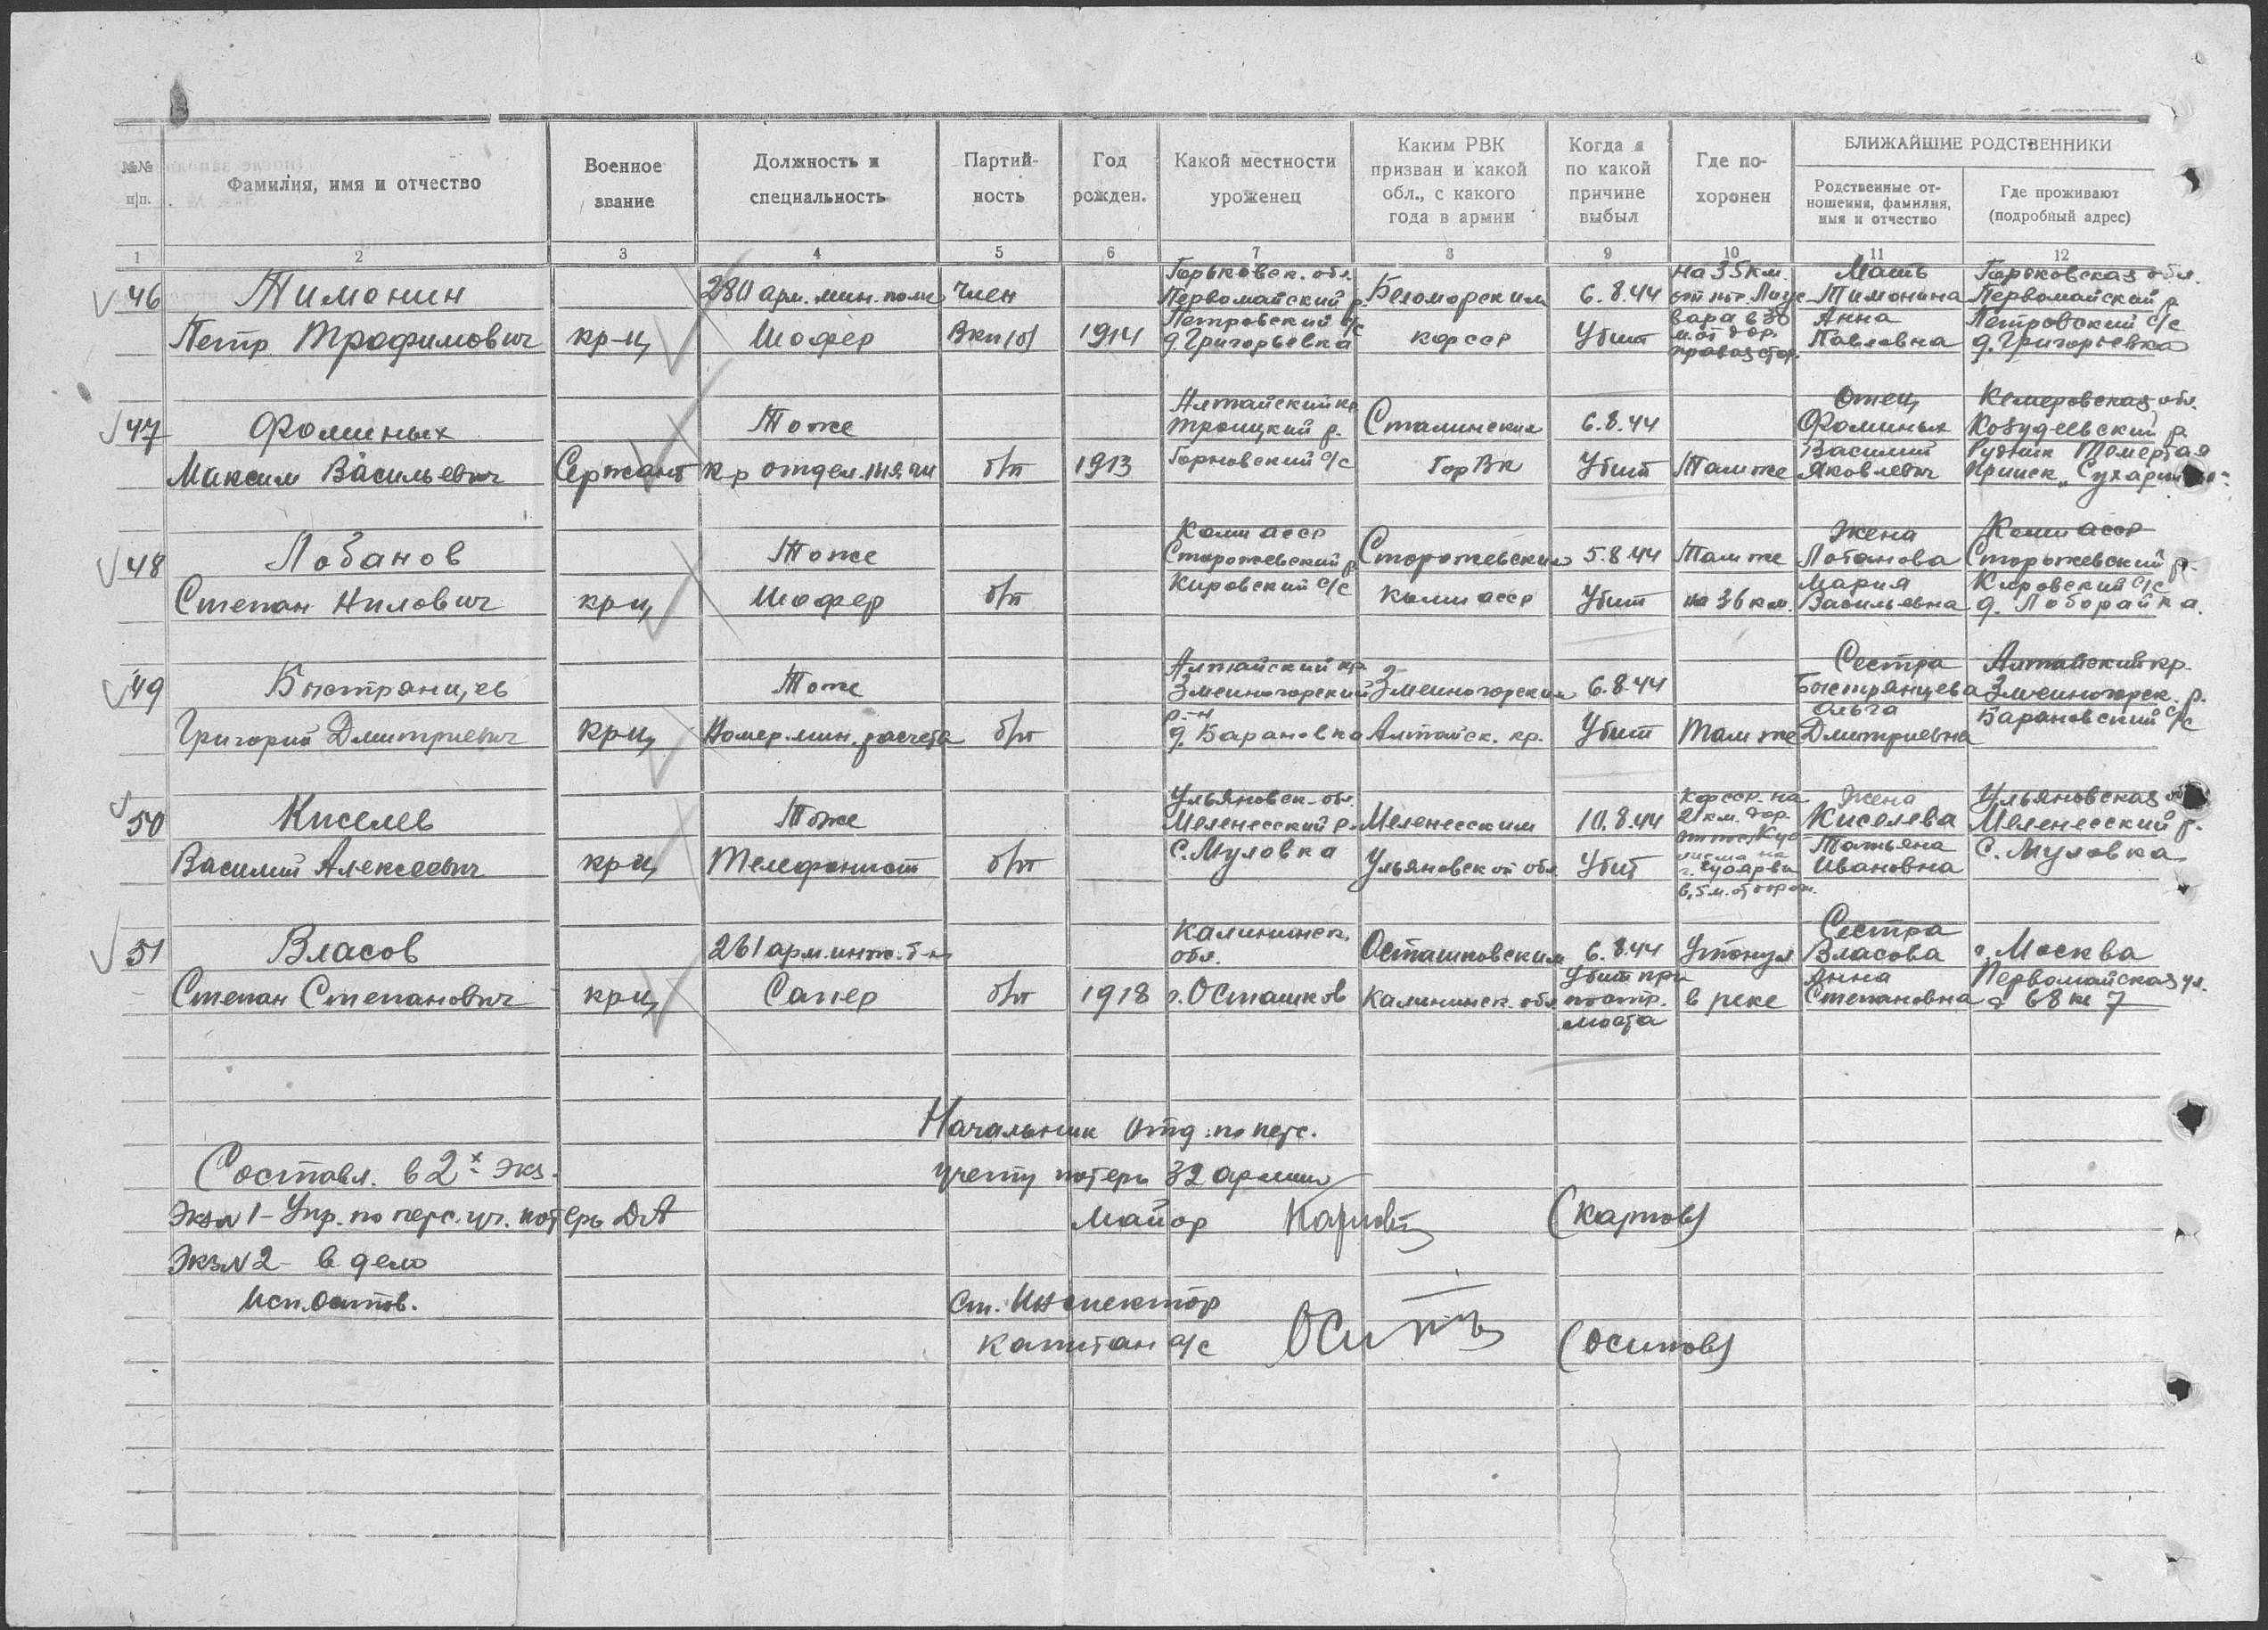 №№ п/п.
Фамилия, имя и отчество
Военное звание
Должность и специальность
Партийность
Год рожден.
Какой местности уроженец
Каким РВК призван и какой обл., с какого года в армии
Когда и по какой причине выбыл
Где похоронен
БЛИЖАЙШИЕ РОДСТВЕННИКИ
Родственные отношения, фамилия, имя и отчество
Где проживают (подробный адрес)
1 2 3 4 5 6 7 8 9 10 11 12
46
Тимонин
Петр Трофимович
кр-ц
280 арм. мин. полк
Шофер
Член
ВКП/б/
1914
Горьковск. обл.
Первомайский р.
Петровский с/с
д. Григорьевка
Беломорским
КФССР
6.8.44
Убит
На 35 км.
вара в 30
м. от дор.
правая стор.
Мать
Тимонина
Анна
Павловна
Горьковская обл.
Первомайский р.
Петровский с/с
д. Григорьевка
47
Фоминых
Максим Васильевич
Сержант
Тоже
б/п
1913
Алтайский кр.
Троицкий р.
Горновский с/с
Сталинским
Гор ВК
6.8.44
Убит
Там же
Отец
Фоминых
Василий
Яковлевич
Кемеровская обл.
48
Лобанов
Степан Нилович
кр-ц
Тоже
Шофер
б/п
Коми асср
Сторожевский р.
Кировский с/с
Сторожевским
Коми асср
5.8.44
Убит
Там же
на 36 км.
Жена
Лобанова
Мария
Васильевна
Коми асср
Сторожевский р.
Кировский с/с
49
Быстрянцев
Григорий Дмитриевич
кр-ц
Тоже
Номер. мин. расчета
б/п
Алтайский кр.
Змеиногорский
р-н
д. Барановка
Змеиногорским
Алтайск. кр.
6.8.44
Убит
Там же
Сестра
Быстрянцева
Ольга
Дмитриевна
Алтайский кр.
Змеиногорск. р.
Барановский с/с
50
Киселев
Василий Алексеевич
кр-ц
Тоже
Телефонист
б/п
Ульяновск. обл.
Меленесский р.
с. Муловка
Меленесским
Ульяновской обл.
10.8.44
Убит
КФССР. на
21 км. дор.
Жена
Киселева
Татьяна
Ивановна
Ульяновская обл.
Меленесский р.
с. Муловка
51
Власов
Степан Степанович
кр-ц
261 арм. инж. б-н
Сапер
б/п
1918
Калининск.
обл.
г. Осташков
Осташковским
Калининск. обл.
6.8.44
Убит при
постр.
моста
Утонул
в реке
Сестра
Власова
Анна
Степановна
г. Москва
Первомайская ул.
д 68 кв 7
Начальник отд. по перс.
учету потерь 32 армии
майор
(Карпов)
Составл. в 2х экз.
Экз N 1 - Упр. по перс. уч. потерь ДА
Экз N 2 - в дело
Исп. Осипов.
Ст. Инспектор
капитан а/с
(Осипов)